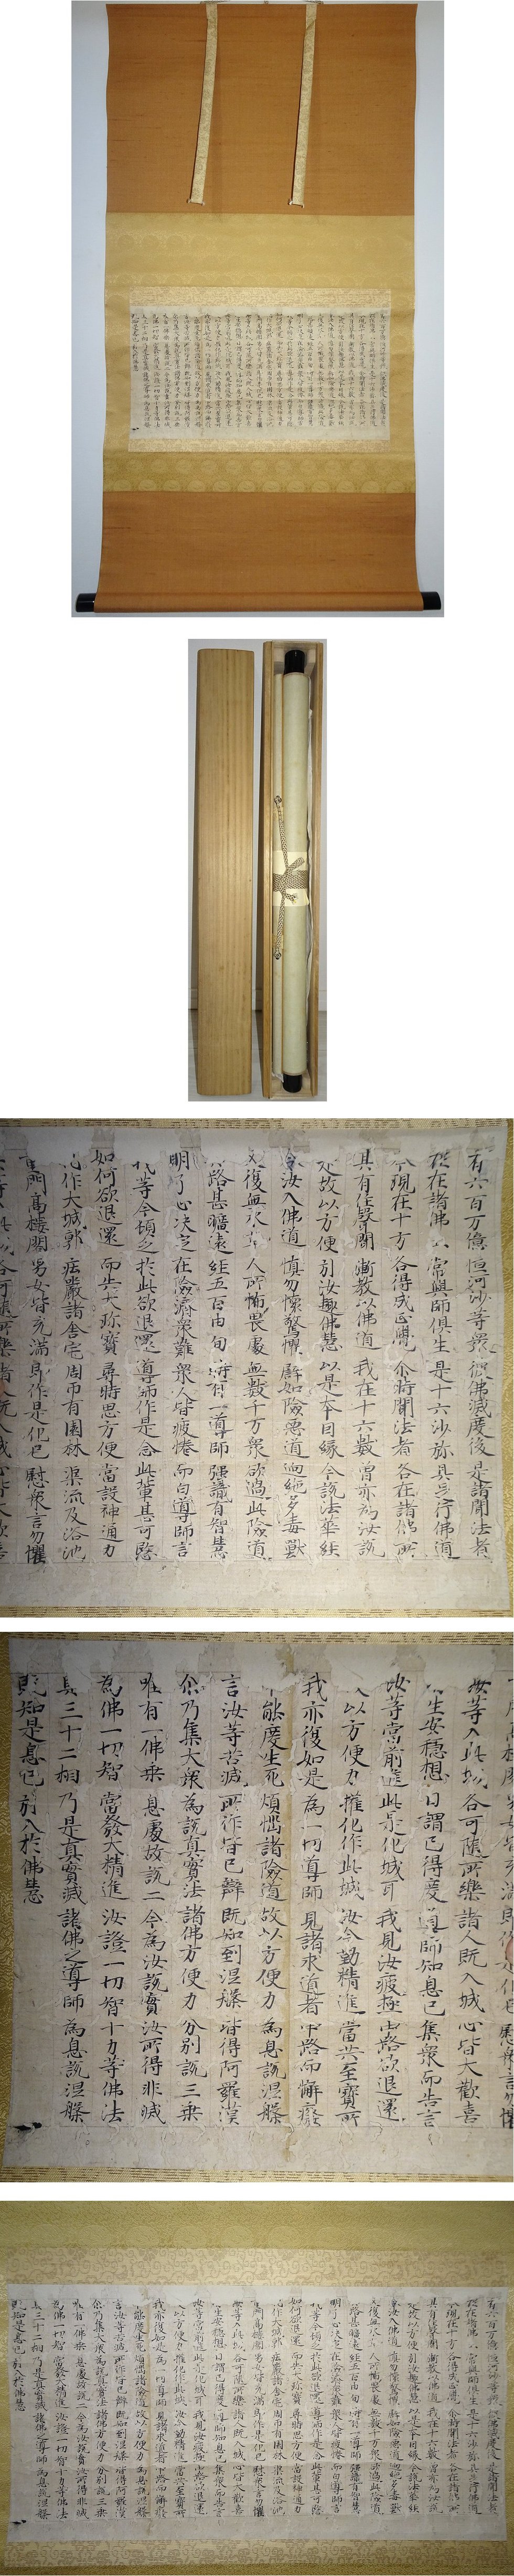 有六百万億 恒河沙等衆 彼佛滅度後 是諸聞法者
在諸佛 常與師俱生 是十六沙弥 具足行佛道
今現在十方 各得成正覺 尒時聞法者 各在諸佛所
其有住聲聞 漸教以佛道 我在十六數 曽亦為汝說
是故以方便 引汝趣佛慧 以是本因縁 今說法華経
令汝入佛道 慎勿懷驚懼 譬如險悪道 迥絶多毒獸
又復無水草 人所怖畏處 無數千万衆 欲過此險道
路甚曠遠 経五百由旬 時有一導師 强識有智慧
明了心决定 在險濟衆難 衆人皆疲惓 而白導師言
我等今頓乏 於此欲退還 導師作是念 此輩甚可愍
如何欲退還 而失大珎寶 尋時思方便 當設神通力
化作大城郭 莊嚴諸舍宅 周帀有園林 渠流及浴池
重門高樓閣 男女皆充滿 即作是化已 慰衆言勿懼
汝等入此城 各可隨所樂 諸人既入城 心皆大歡喜
生安穩想 自謂已得度 導師知息已 集衆而告言
汝等當前進 此是化城耳 我見汝疲極 中路欲退還
以方便力 權化作此城 汝今勤精進 當共至寶所
我亦復如是 為一切導師 見諸求道者 中路而懈廢
不能度生死 煩惱諸險道 故以方便力 為息說涅槃
言汝等苦滅 所作皆已辦 既知到涅槃 皆得阿羅漢
尒乃集大衆 為說真實法 諸佛方便力 分別說三乘
唯有一佛乘 息處故說二 今為汝說實 汝所得非滅
為佛一切智 當發大精進 汝證一切智 十力等佛法
具三十二相 乃是真實滅 諸佛之導師 為息說涅槃
既知是息已 引入於佛慧